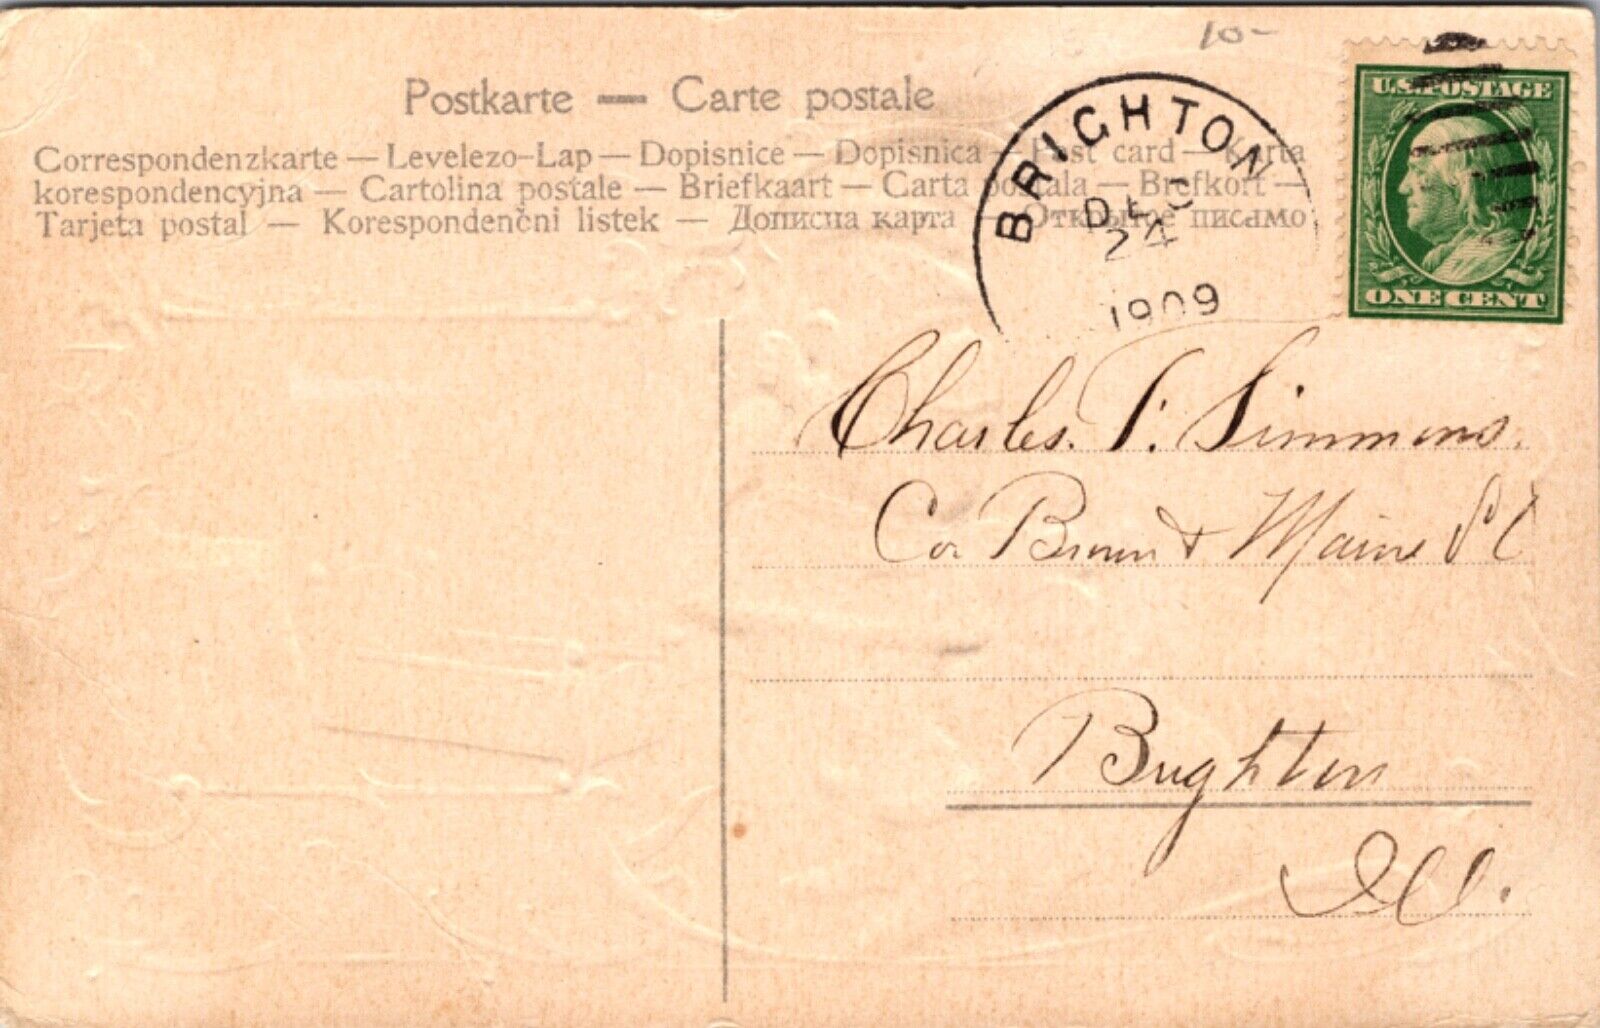 10-
Postkarte — Carte postale
Correspondenzkarte — Levelezo-Lap — Dopisnice — Dopisnica — Post card — Karta
korespondencyjna — Cartolina postale — Briefkaart — Carta postala — Brefkort —
Tarjeta postal — Korespondenčni listek — Дописна карта — Открытое письмо
BRIGHTON
DEC
24
1909
U.S. POSTAGE
ONE CENT
Charles. T. Simmons.
Cor Brown & Maine St
Brighton
Ill.